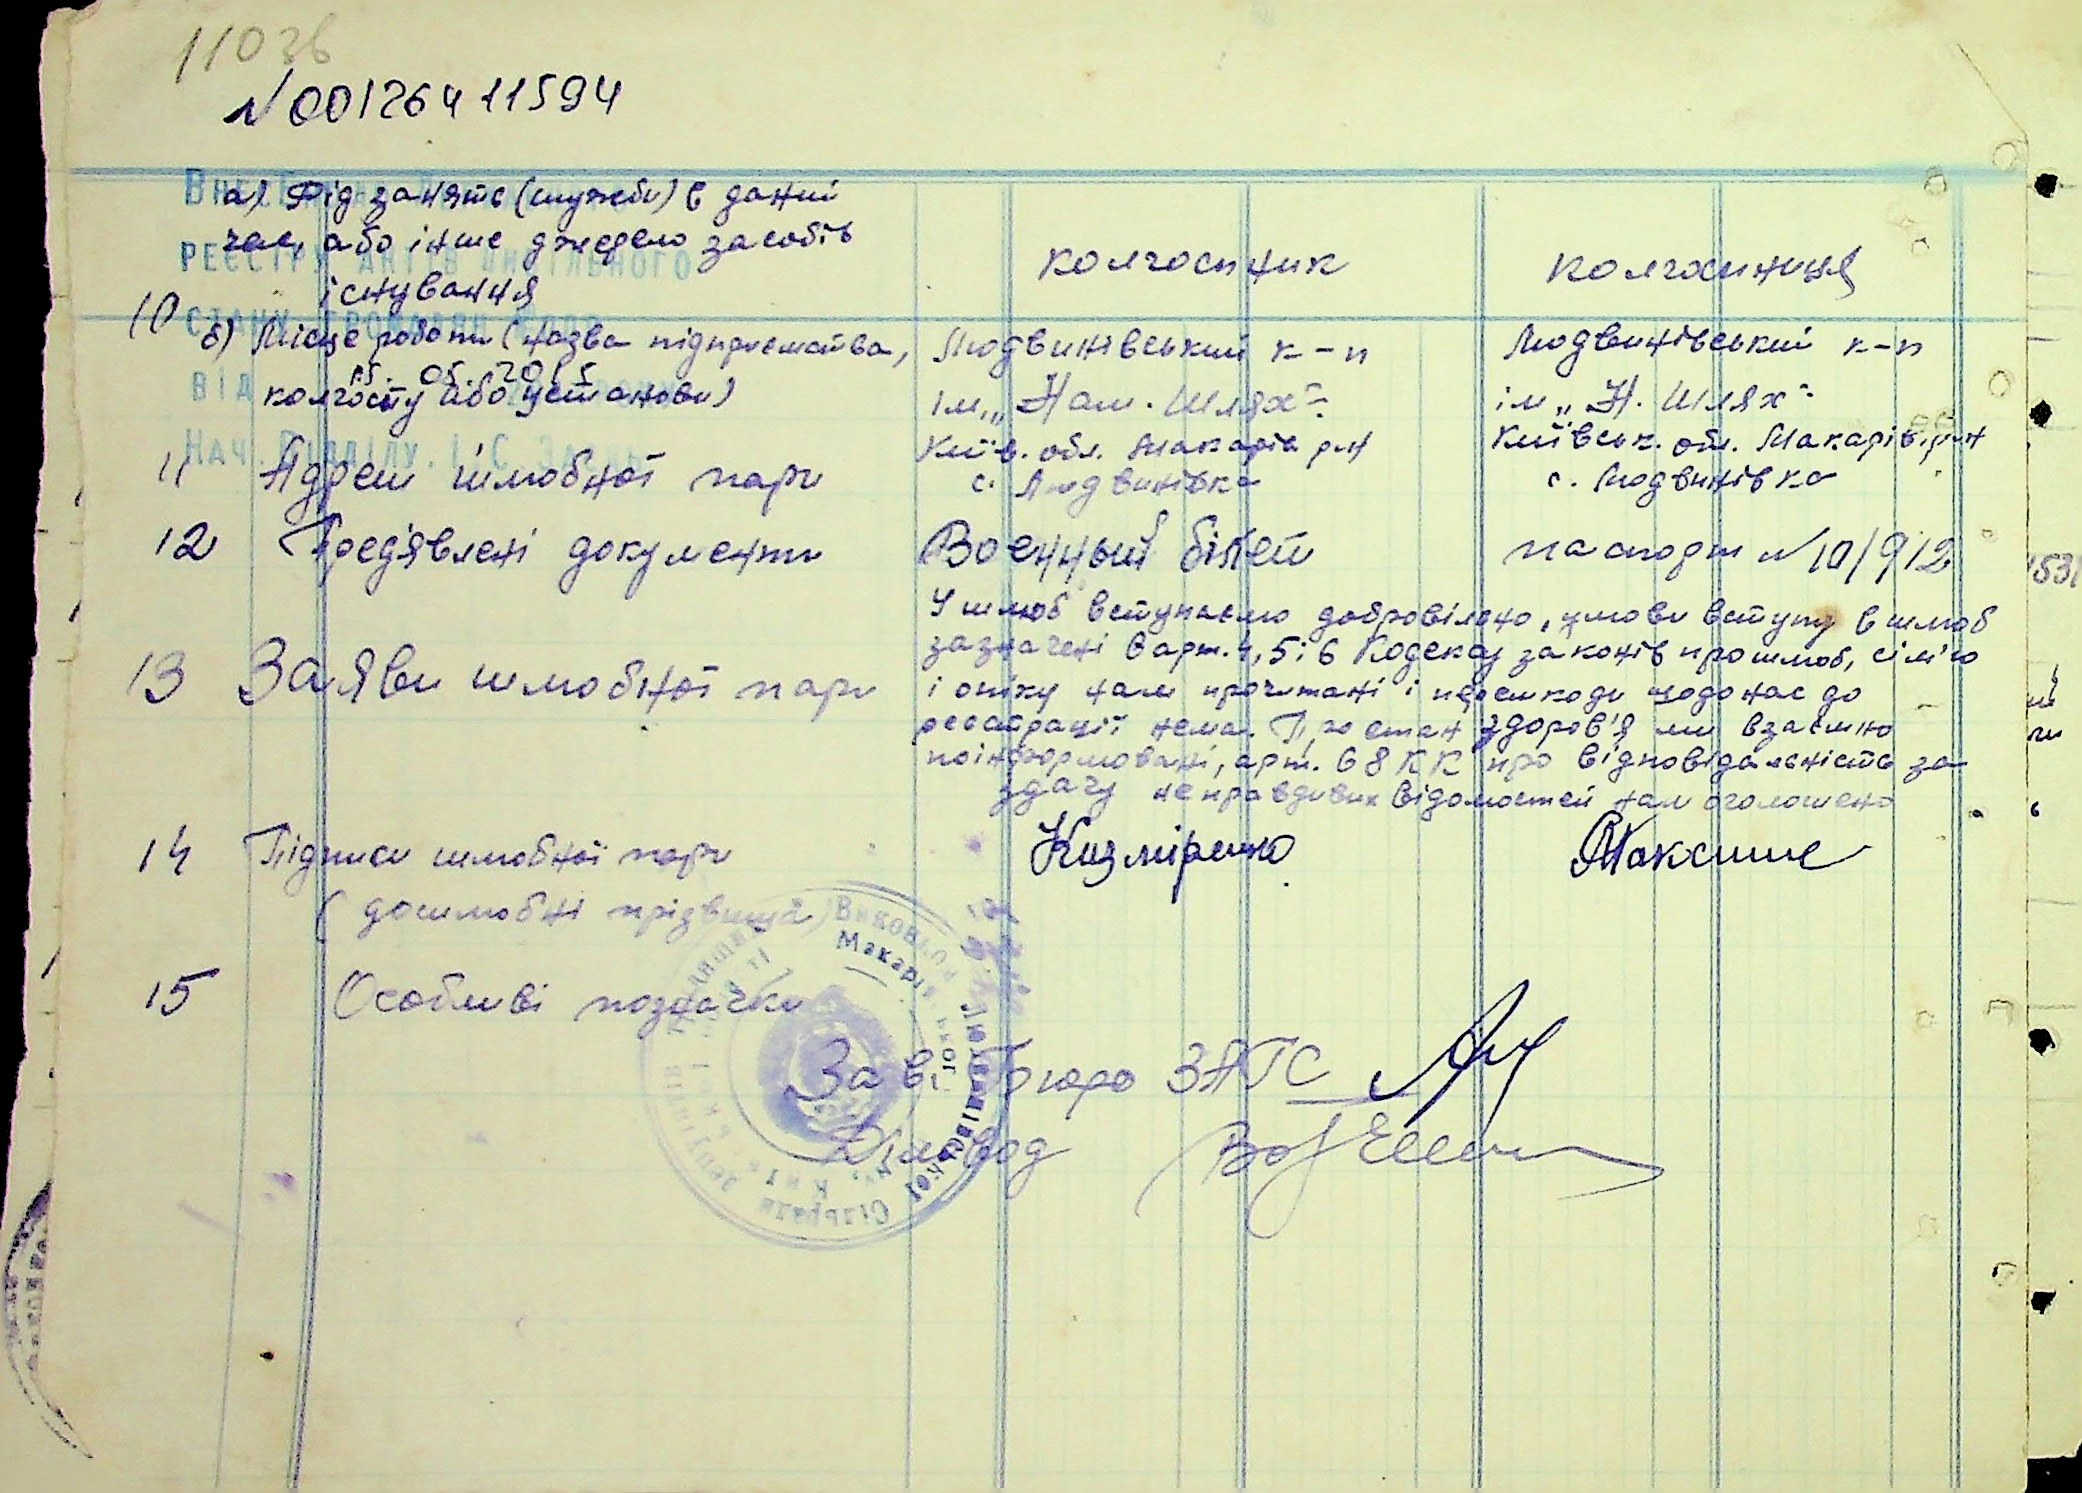 11036
N 00126411594
а) Рід занять (служби) в даний
час, або інше джерело засобів
існування
колгоспник
колгоспниця
10
б) Місце роботи (назва підприємства,
колгоспу або установи)
Людвинівський к-п
ім. „Наш. Шлях"
Людвинівський к-п
ім „Н. Шлях"
РЕЄСТРУ АКТІВ ЦИВІЛЬНОГО
СТАНУ ГРОМАДЯН
ВІД 15. 05. 2015
НАЧ. ВІДДІЛУ І.С.
11 Адреси шлюбної пари
Київ. обл. Макарів р-н
с. Людвинівка
Київськ. обл. Макарів. р-н
с. Людвинівка
12 Предявлені документи
Военный білет
паспорт N 10/912
13 Заяви шлюбної пари
У шлюб вступаємо добровільно, умови вступу в шлюб
зазначені в арт. 4, 5 і 6 Кодексу законів про шлюб, сім'ю
і опіку нам прочитані і перешкоди щодо нас до
реєстрації нема. Про стан здоров'я ми взаємно
поінформовані, арт. 68 КК про відповідальність за
здачу неправдивих відомостей нам оголошено
14 Підписи шлюбної пари
(дошлюбні прізвища)
15 Особливі позначки
Зав. Бюро ЗАГС
Діловод
Людвинівської
Сільради